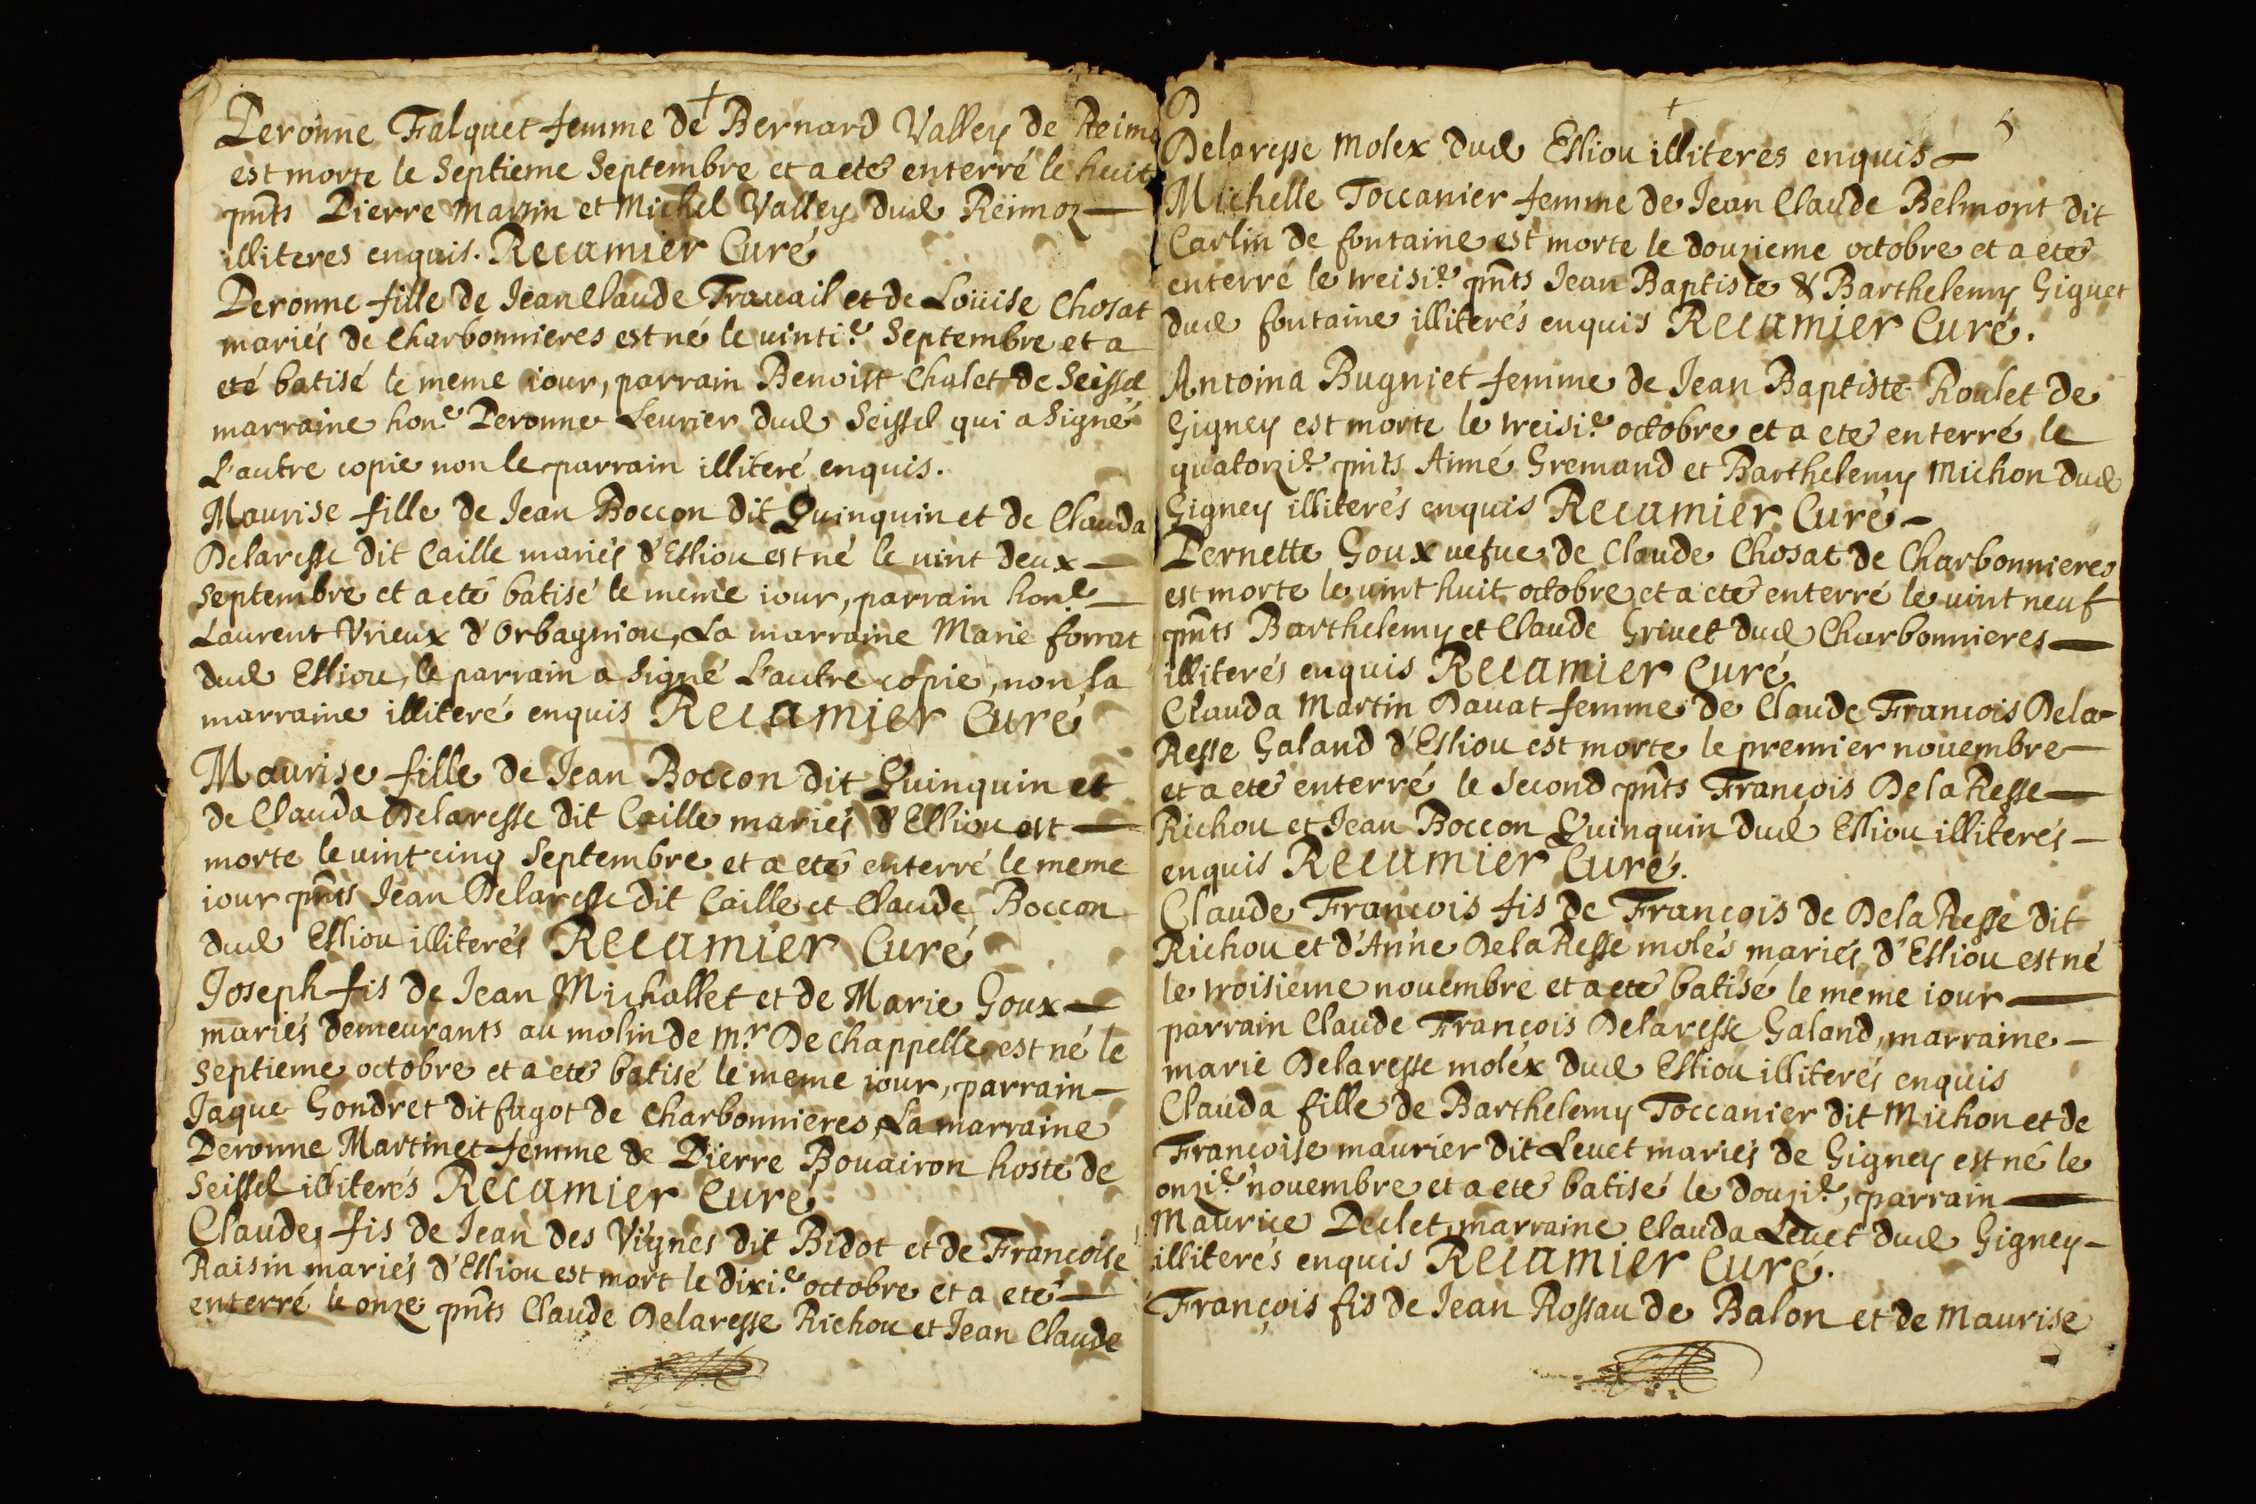 Peronne Falquet femme de Bernard Valley de Reimo
est morte le septieme Septembre et a eté enterré le huit
pnts Pierre Martin et Michel Valley dud Reimoz
illiteres enquis. Recamier Curé
Peronne fille de Jean Claude Travail et de Loüise Chosat
mariés de Charbonnieres est né le vinti.e Septembre et a
eté batisé le meme iour, parrain Benoist Chalet de Seissel
marraine hon.e Peronne Levrier dud Seissel qui a signé
L'autre copie non le parrain illiteré enquis.
Maurise fille de Jean Boccon dit Quinquin et de Clauda
Delaresse dit Caille mariés d'Elliou est né le vint deux
septembre et a eté batisé le meme iour, parrain hon.le
Laurent Vrieux d'Orbagniou, La marraine Marie forrat
dud Elliou, le parrain a signé L'autre copie, non la
marraine illiteré enquis Recamier Curé
Maurise fille de Jean Boccon dit Quinquin et
de Clauda Delaresse dit Caille mariés d'Elliou est
morte le vint cinq Septembre et a eté enterré le meme
iour pnts Jean Delaresse dit Caille et Claude Boccon
dud Elliou illiterés Recamier Curé
Joseph fis de Jean Michallet et de Marie Goux
mariés demeurants au molin de Mr. De Chappelle est né le
septieme octobre et a eté batisé le meme iour, parrain
Jaque Gondret dit fagot de Charbonnieres, La marraine
Peronne Martinet femme de Pierre Bouairon hoste de
Seissel illiterés Recamier Curé
Claude fis de Jean des Vignes dit Bidot et de Francoise
Raisin mariés d'Elliou est mort le dixi.e octobre et a eté
enterré le onze pnts Claude Delaresse Richou et Jean Claude
5
Delaresse Molex dud Elliou illiteres enquis
Michelle Toccanier femme de Jean Claude Belmont dit
Carlin de fontaine est morte le douzieme octobre et a eté
enterré le treisi.e pnts Jean Baptiste & Barthelemy Giguet
dud fontaine illiterés enquis Recamier Curé.
Antoina Bugniet femme de Jean Baptiste Roulet de
Gigney est morte le treisi.e octobre et a eté enterré le
quatorzi.e pnts Aimé Gremand et Barthelemy Michon dud
Gigney illiterés enquis Recamier Curé
Pernette Goux vefue de Claude Chosat de Charbonnieres
est morte le vint huit octobre et a eté enterré le vint neuf
pnts Barthelemy et Claude Grivet dud Charbonnieres
illiterés enquis Recamier Curé
Clauda Martin Davat femme de Claude Francois Dela-
Resse Galand d'Elliou est morte le premier novembre
et a eté enterré le second pnts François DelaResse
Richou et Jean Boccon Quinquin dud Elliou illiterés
enquis Recamier Curé.
Claude François fis de François de DelaResse dit
Richou et d'Anne DelaResse molés mariés d'Elliou est né
le troisieme novembre et a eté batisé le meme iour
parrain Claude François Delaresse Galand, marraine
marie Delaresse moléx dud Elliou illiterés enquis
Clauda fille de Barthelemy Toccanier dit Michon et de
Françoise maurier dit Levet mariés de Gigney est né le
onzi.e novembre et a eté batisé le douzi.e, parrain
Maurice Declet, marraine Clauda Levet dud Gigney
illiterés enquis Recamier Curé.
François fis de Jean Rossau de Balon et de Maurise